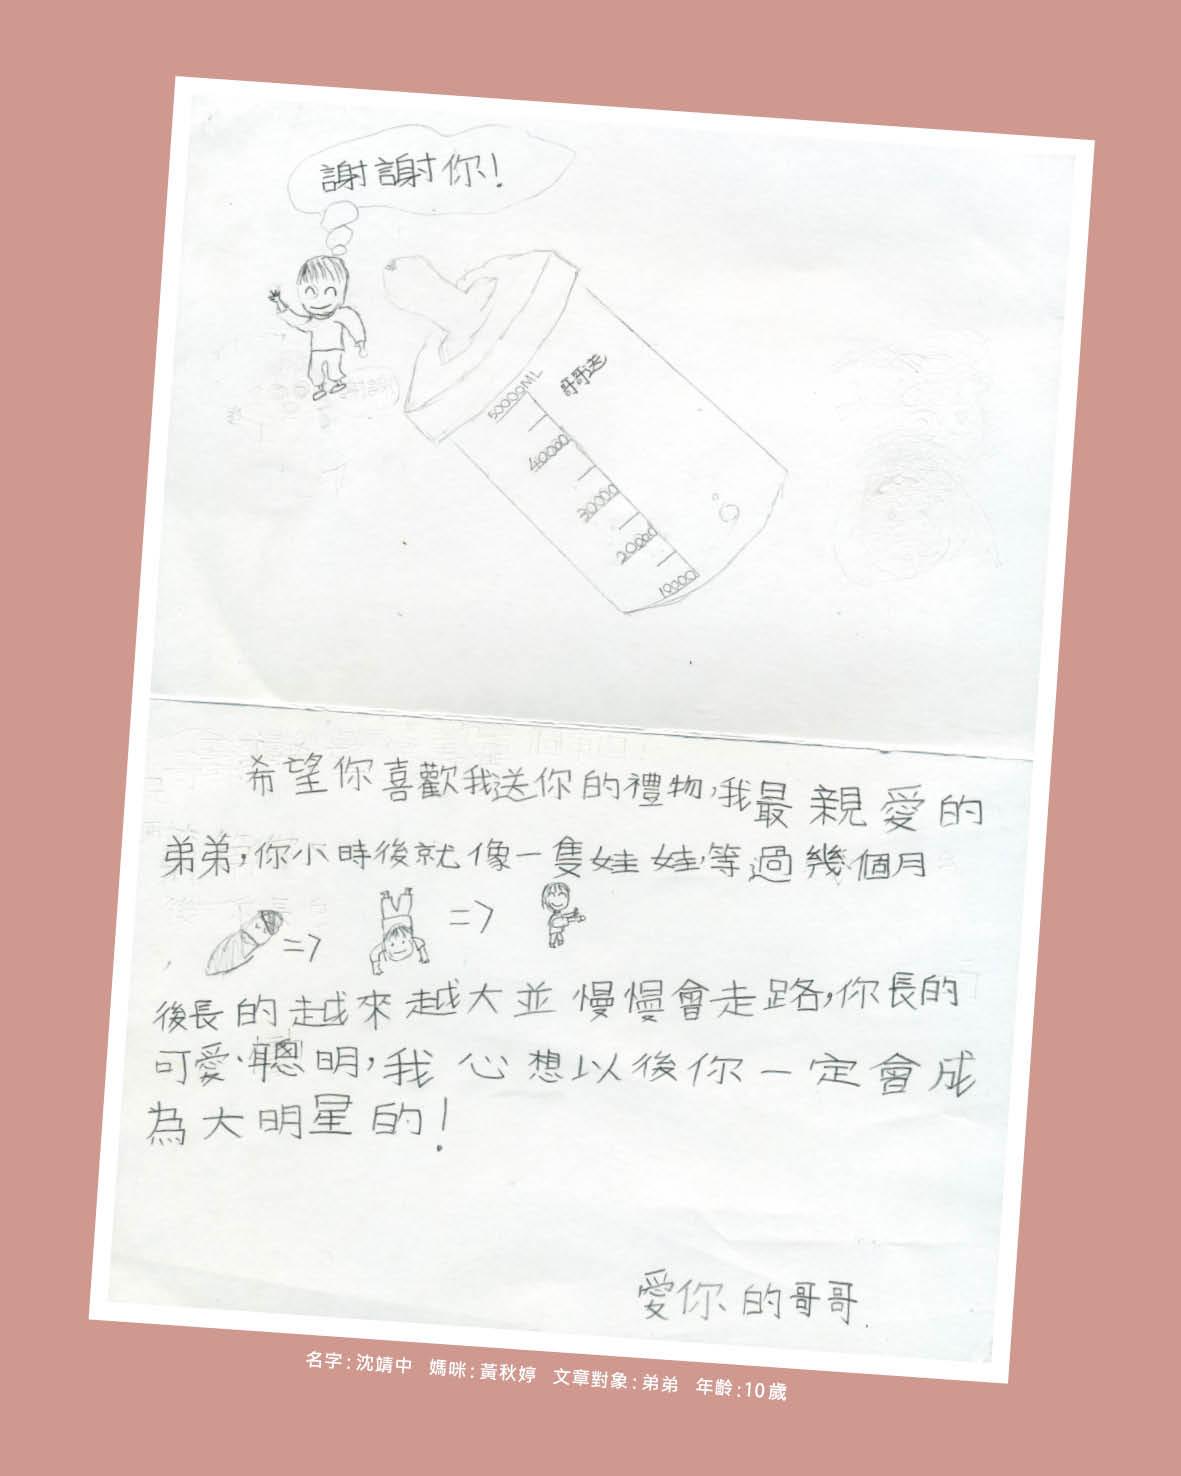 謝謝你!
哥哥送
50000ML
40000
30000
20000
10000
希望你喜歡我送你的禮物,我最親愛的
弟弟,你小時後就像一隻娃娃,等過幾個月
=> =>
後長的越來越大並慢慢會走路,你長的
可愛、聰明,我心想以後你一定會成
為大明星的!
愛你的哥哥.
名字:沈靖中 媽咪:黃秋婷 文章對象:弟弟 年齡:10歲